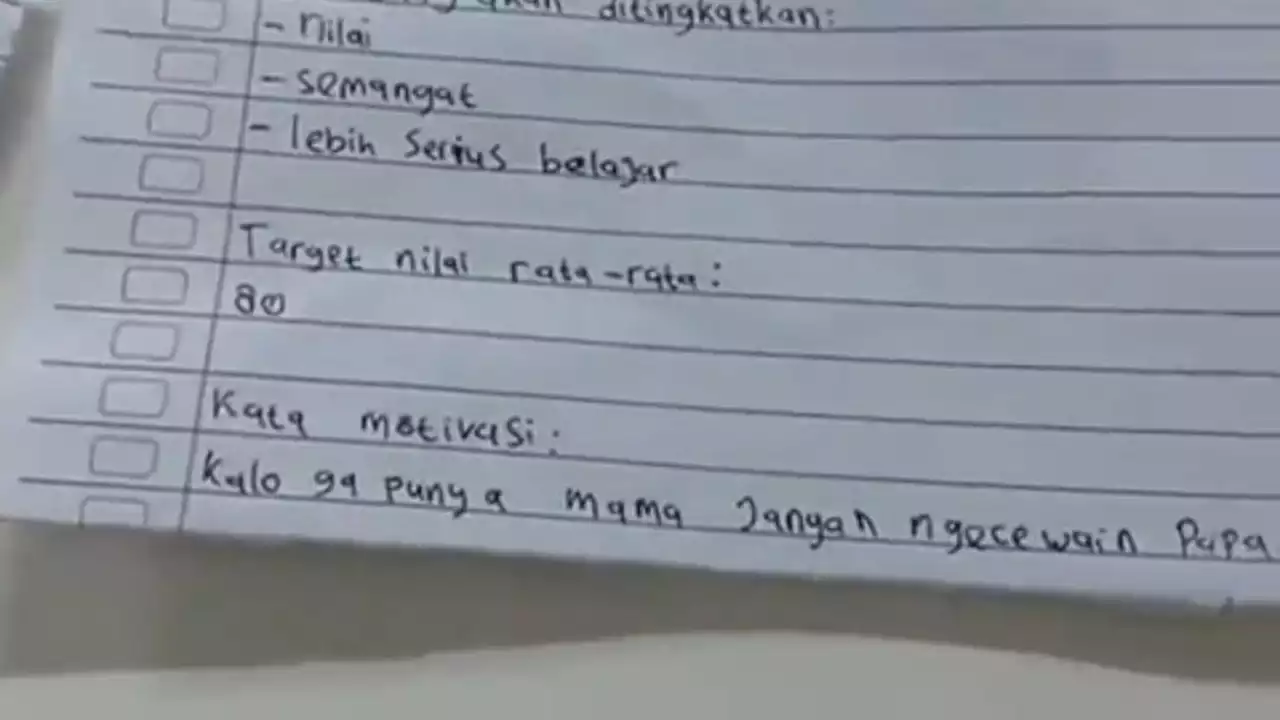 ditingkatkan:
- nilai
- semangat
- lebih Serius belajar
Target nilai rata-rata:
80
Kata motivasi:
Kalo ga punya mama Jangan ngecewain Papa